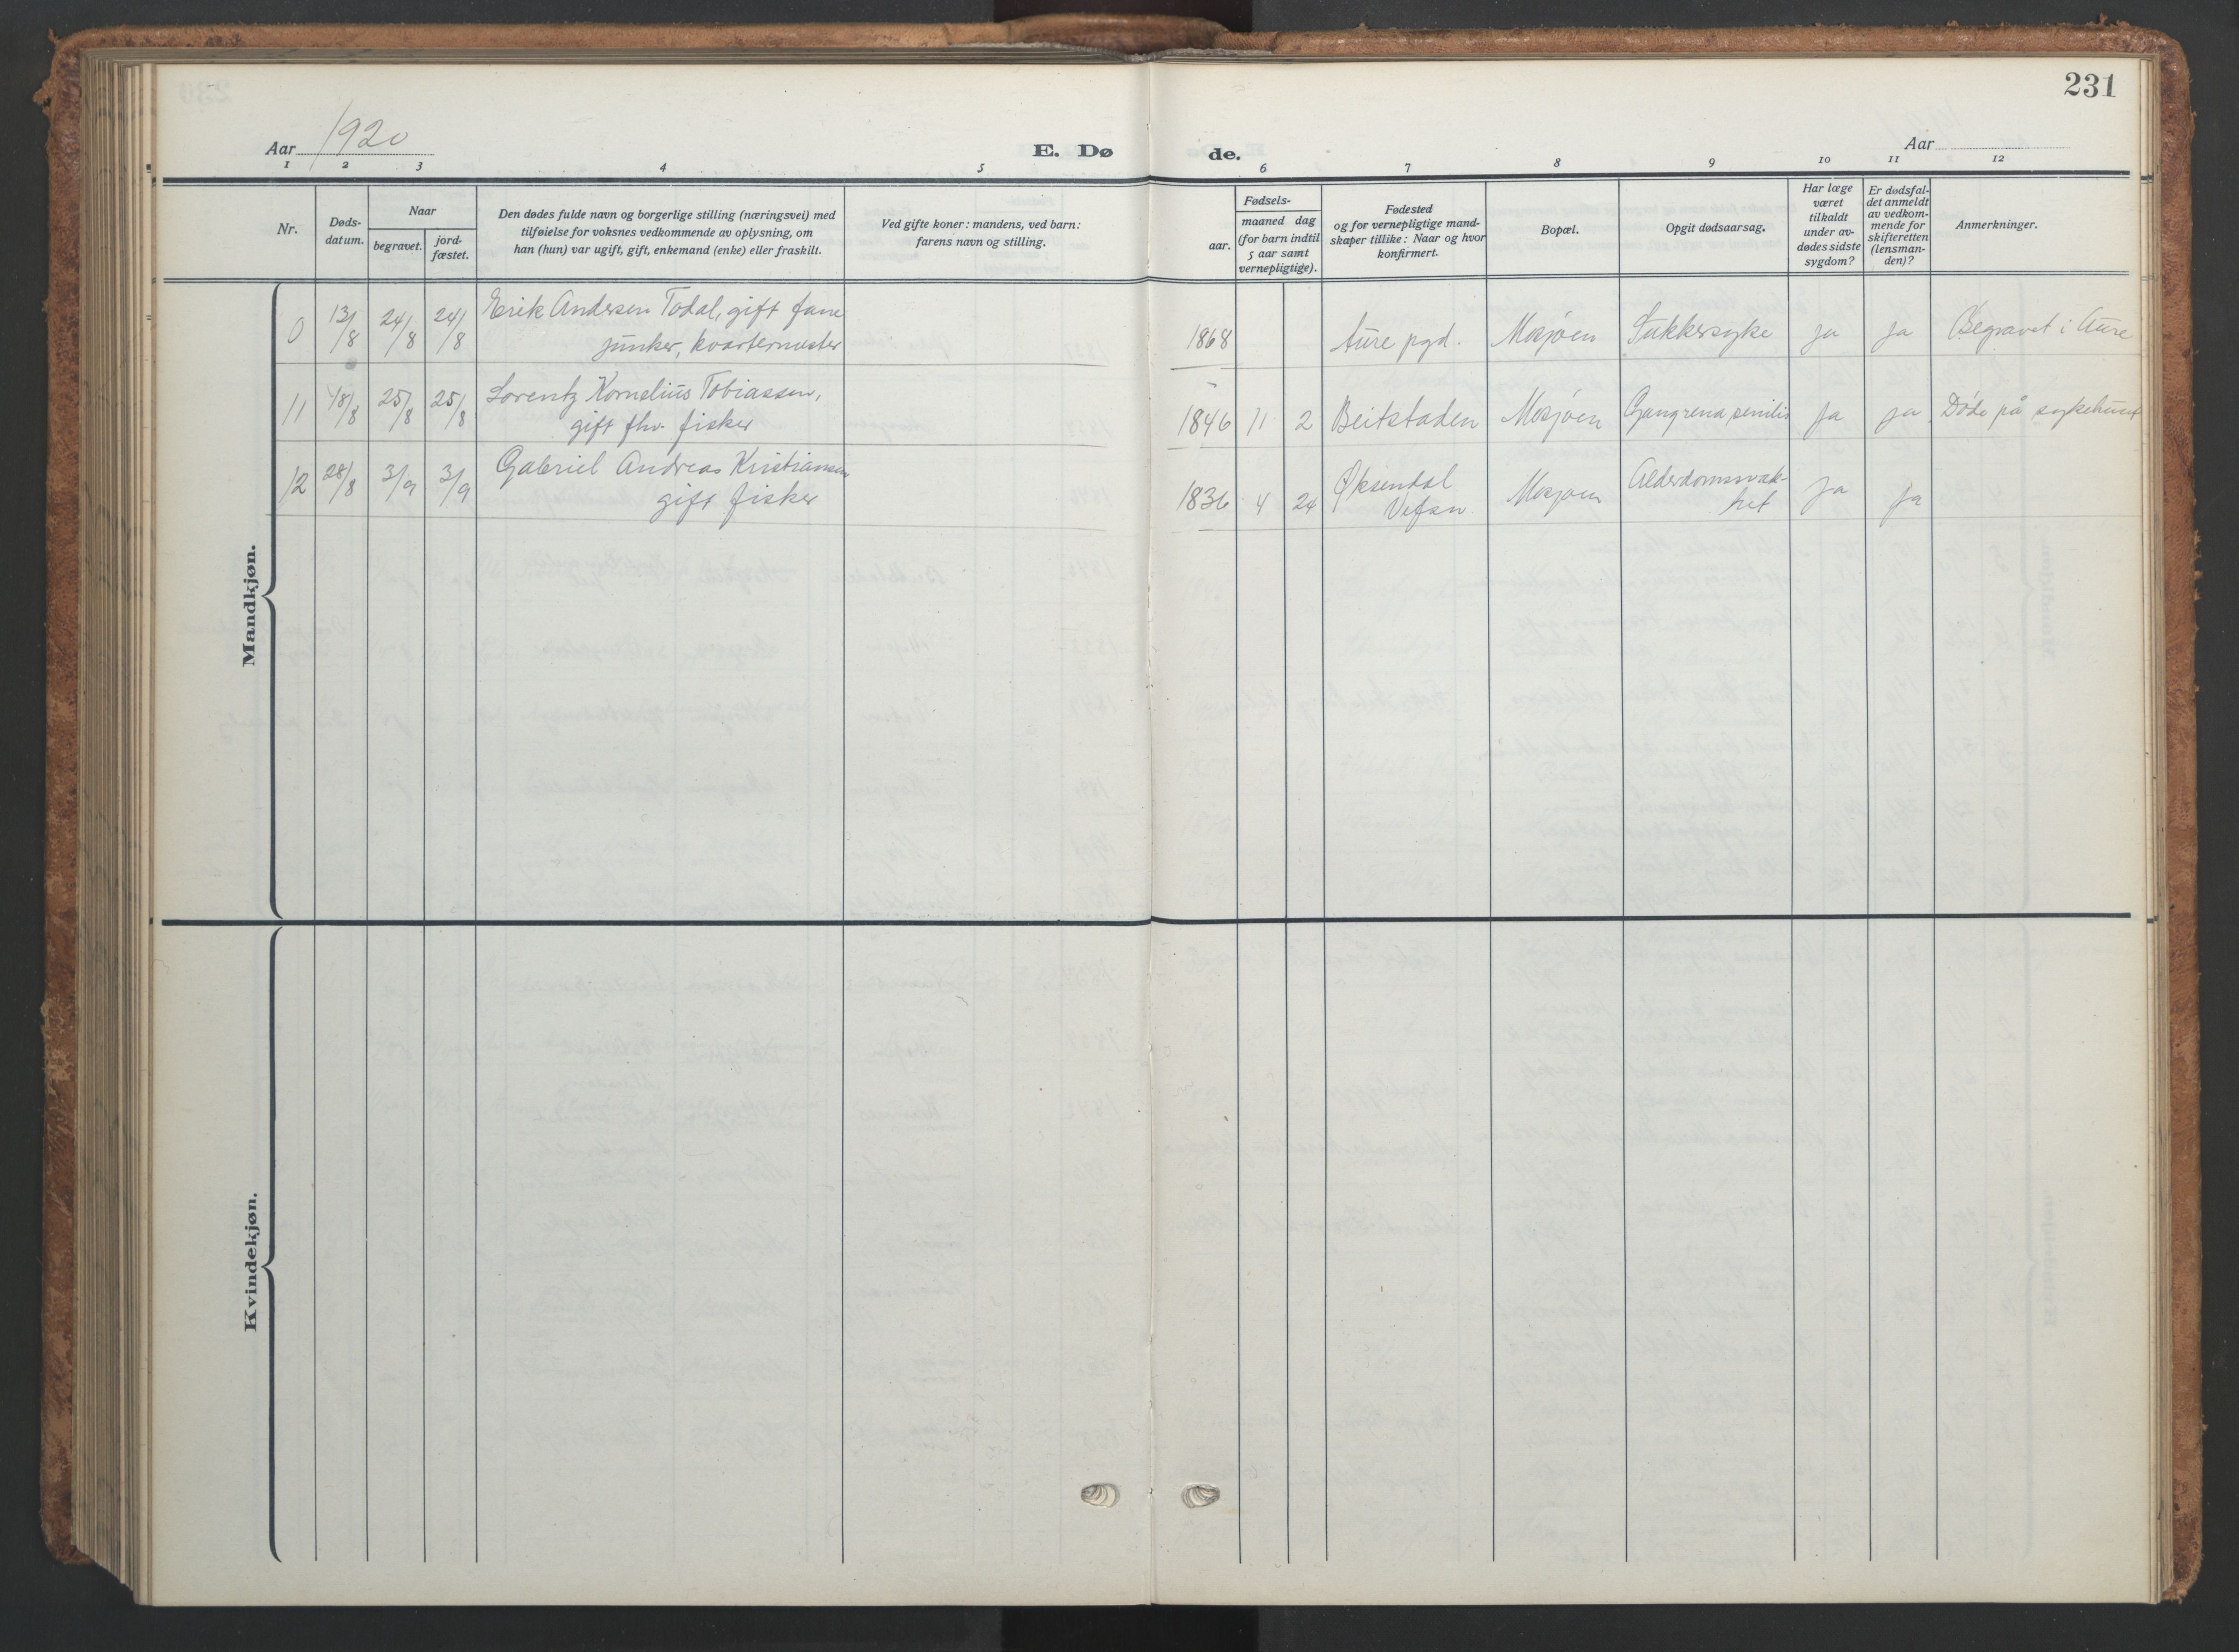 231
Aar 1920
E. Dø de.
Aar
1 2 3 4 5 6 7 8 9 10 11 12
Nr.
Døds-
datum.
Naar
begravet.
jord-
fæstet.
Den dødes fulde navn og borgerlige stilling (næringsvei) med
tilføielse for voksnes vedkommende av oplysning, om
han (hun) var ugift, gift, enkemand (enke) eller fraskilt.
Ved gifte koner: mandens, ved barn:
farens navn og stilling.
Fødsels-
aar.
maaned dag
(for barn indtil
5 aar samt
vernepligtige).
Fødested
og for vernepligtige mand-
skaper tillike: Naar og hvor
konfirmert.
Bopæl.
Opgit dødsaarsag.
Har læge
været
tilkaldt
under av-
dødes sidste
sygdom?
Er dødsfal-
det anmeldt
av vedkom-
mende for
skifteretten
(lensman-
den)?
Anmerkninger.
Mandkjøn.
0 13/8 24/8 24/8 Erik Andersen Todal, gift fane
junker, kvartermester
1868 Aure pgd. Mosjøen Sukkersyke ja ja Begravet i Aure
11 18/8 25/8 25/8 Lorentz Kornelius Tobiassen,
gift fhv. fisker
1846 11 2 Beitstaden Mosjøen Gangrena senilis ja ja Døde på sykehuset
12 28/8 3/9 3/9 Gabriel Andreas Kristiansen
gift fisker
1836 4 24 Øksendal
Vefsn Mosjøen Alderdomssvak-
het ja ja
Kvindekjøn.